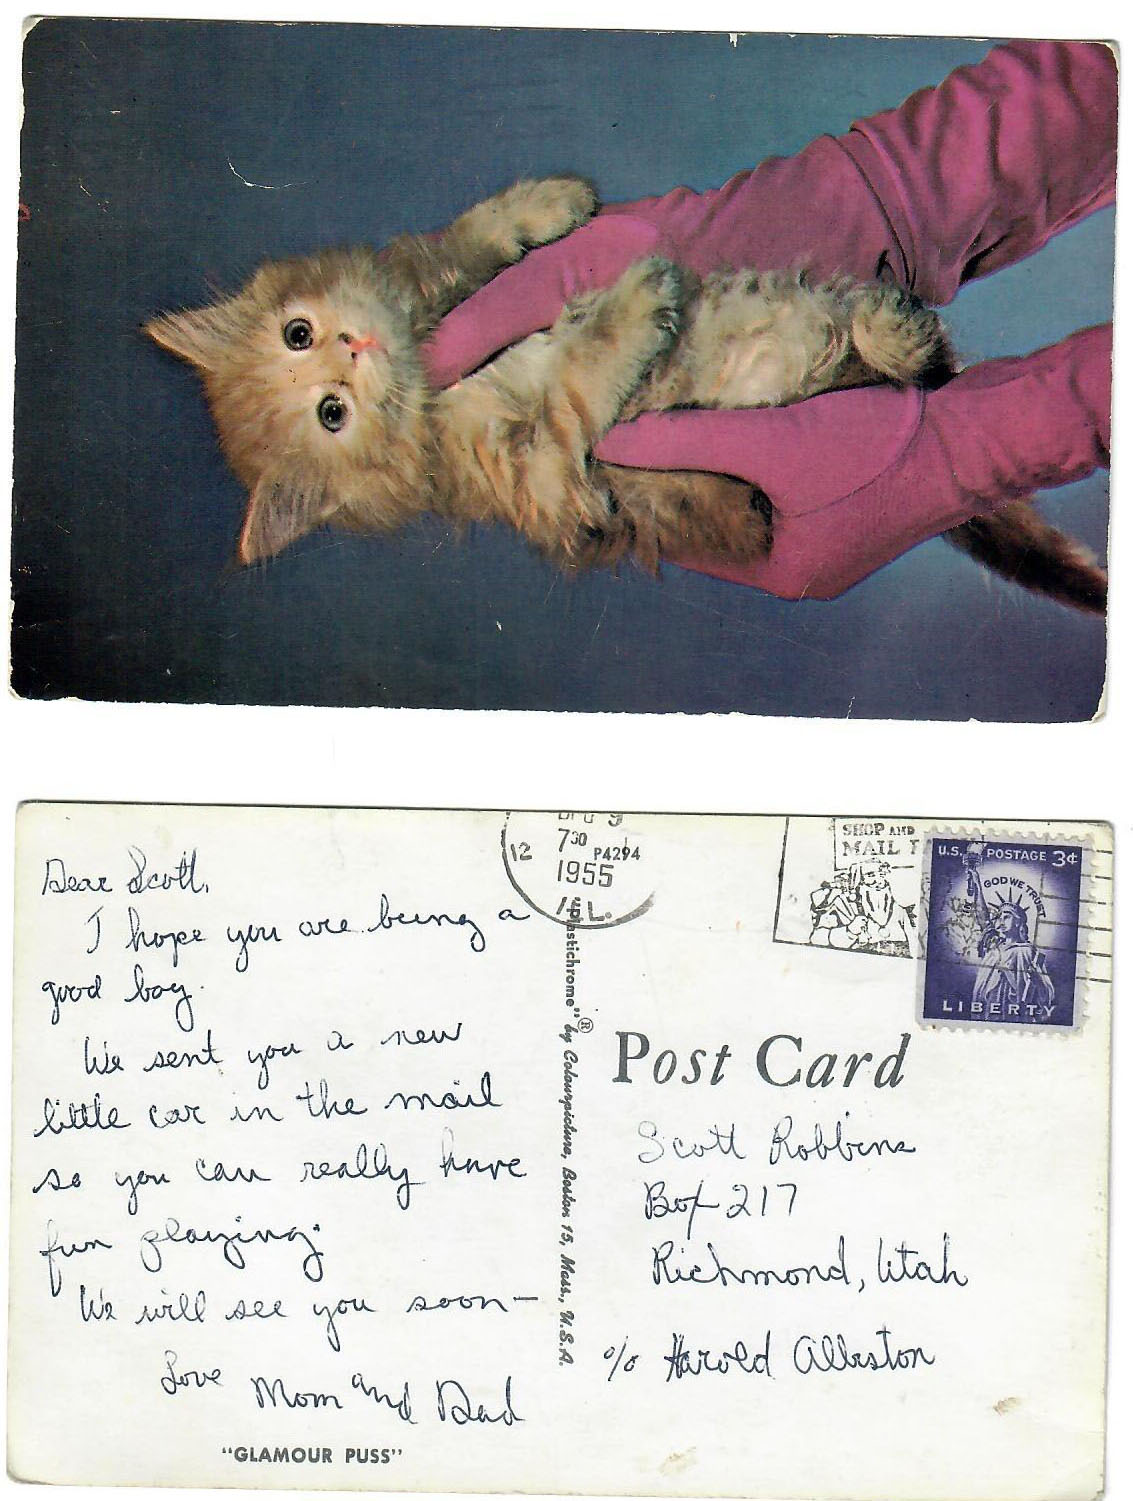 Dear Scott,
I hope you are being a
good boy.
We sent you a new
little car in the mail
so you can really have
fun playing.
We will see you soon—
Love
Mom and Dad
"GLAMOUR PUSS"
"Plastichrome"® by Colourpicture, Boston 15, Mass., U.S.A.
DEC 9
7 30
12 P4294
1955
ILL.
SHOP AND
MAIL
U.S. POSTAGE 3¢
IN GOD WE TRUST
LIBERTY
Post Card
Scott Robbins
Box 217
Richmond, Utah
c/o Harold Alliston